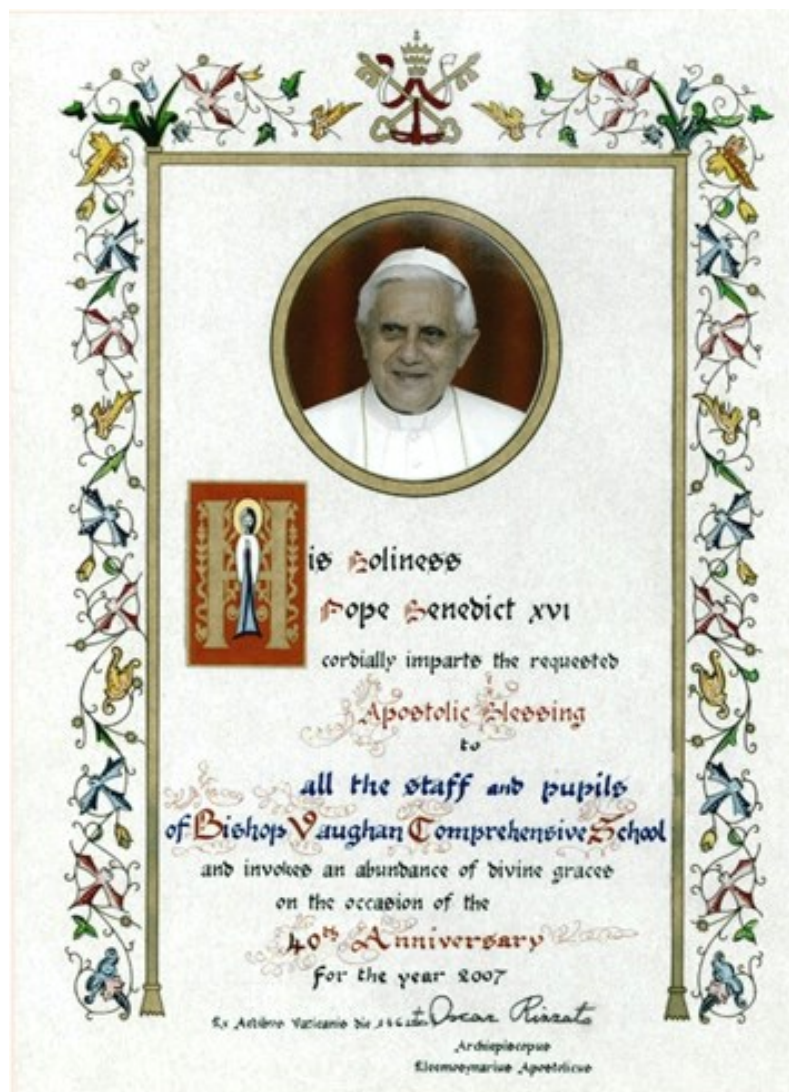 His Holiness
Pope Benedict XVI
cordially imparts the requested
Apostolic Blessing
to
all the staff and pupils
of Bishop Vaughan Comprehensive School
and invokes an abundance of divine graces
on the occasion of the
40th Anniversary
for the year 2007
Ex Aedibus Vaticanis die + Oscar Rizzato
Archiepiscopus
Eleemosynarius Apostolicus